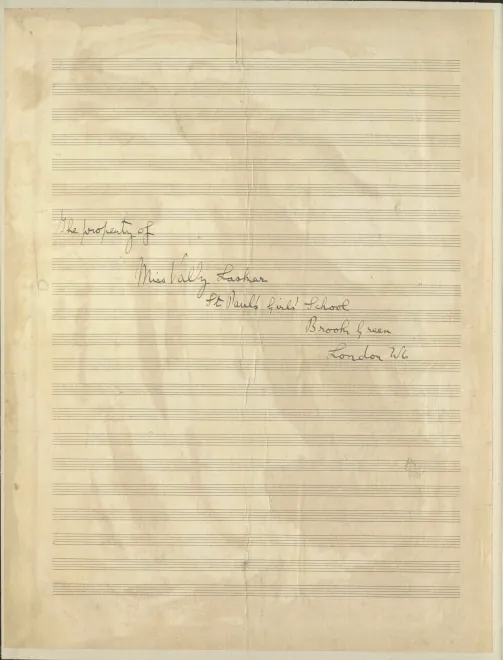 The property of
Miss Vally Lasker
St Paul's Girls' School
Brook Green
London W6